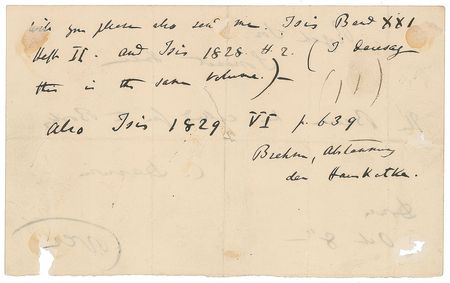 will you please also send me, Isis Band XXI
Heft II. and Isis 1828. H. 2. (I daresay
this is the same volume.)—
Also Isis 1829 VI p. 639
Brehm, Abstammung
der Hauskatze.